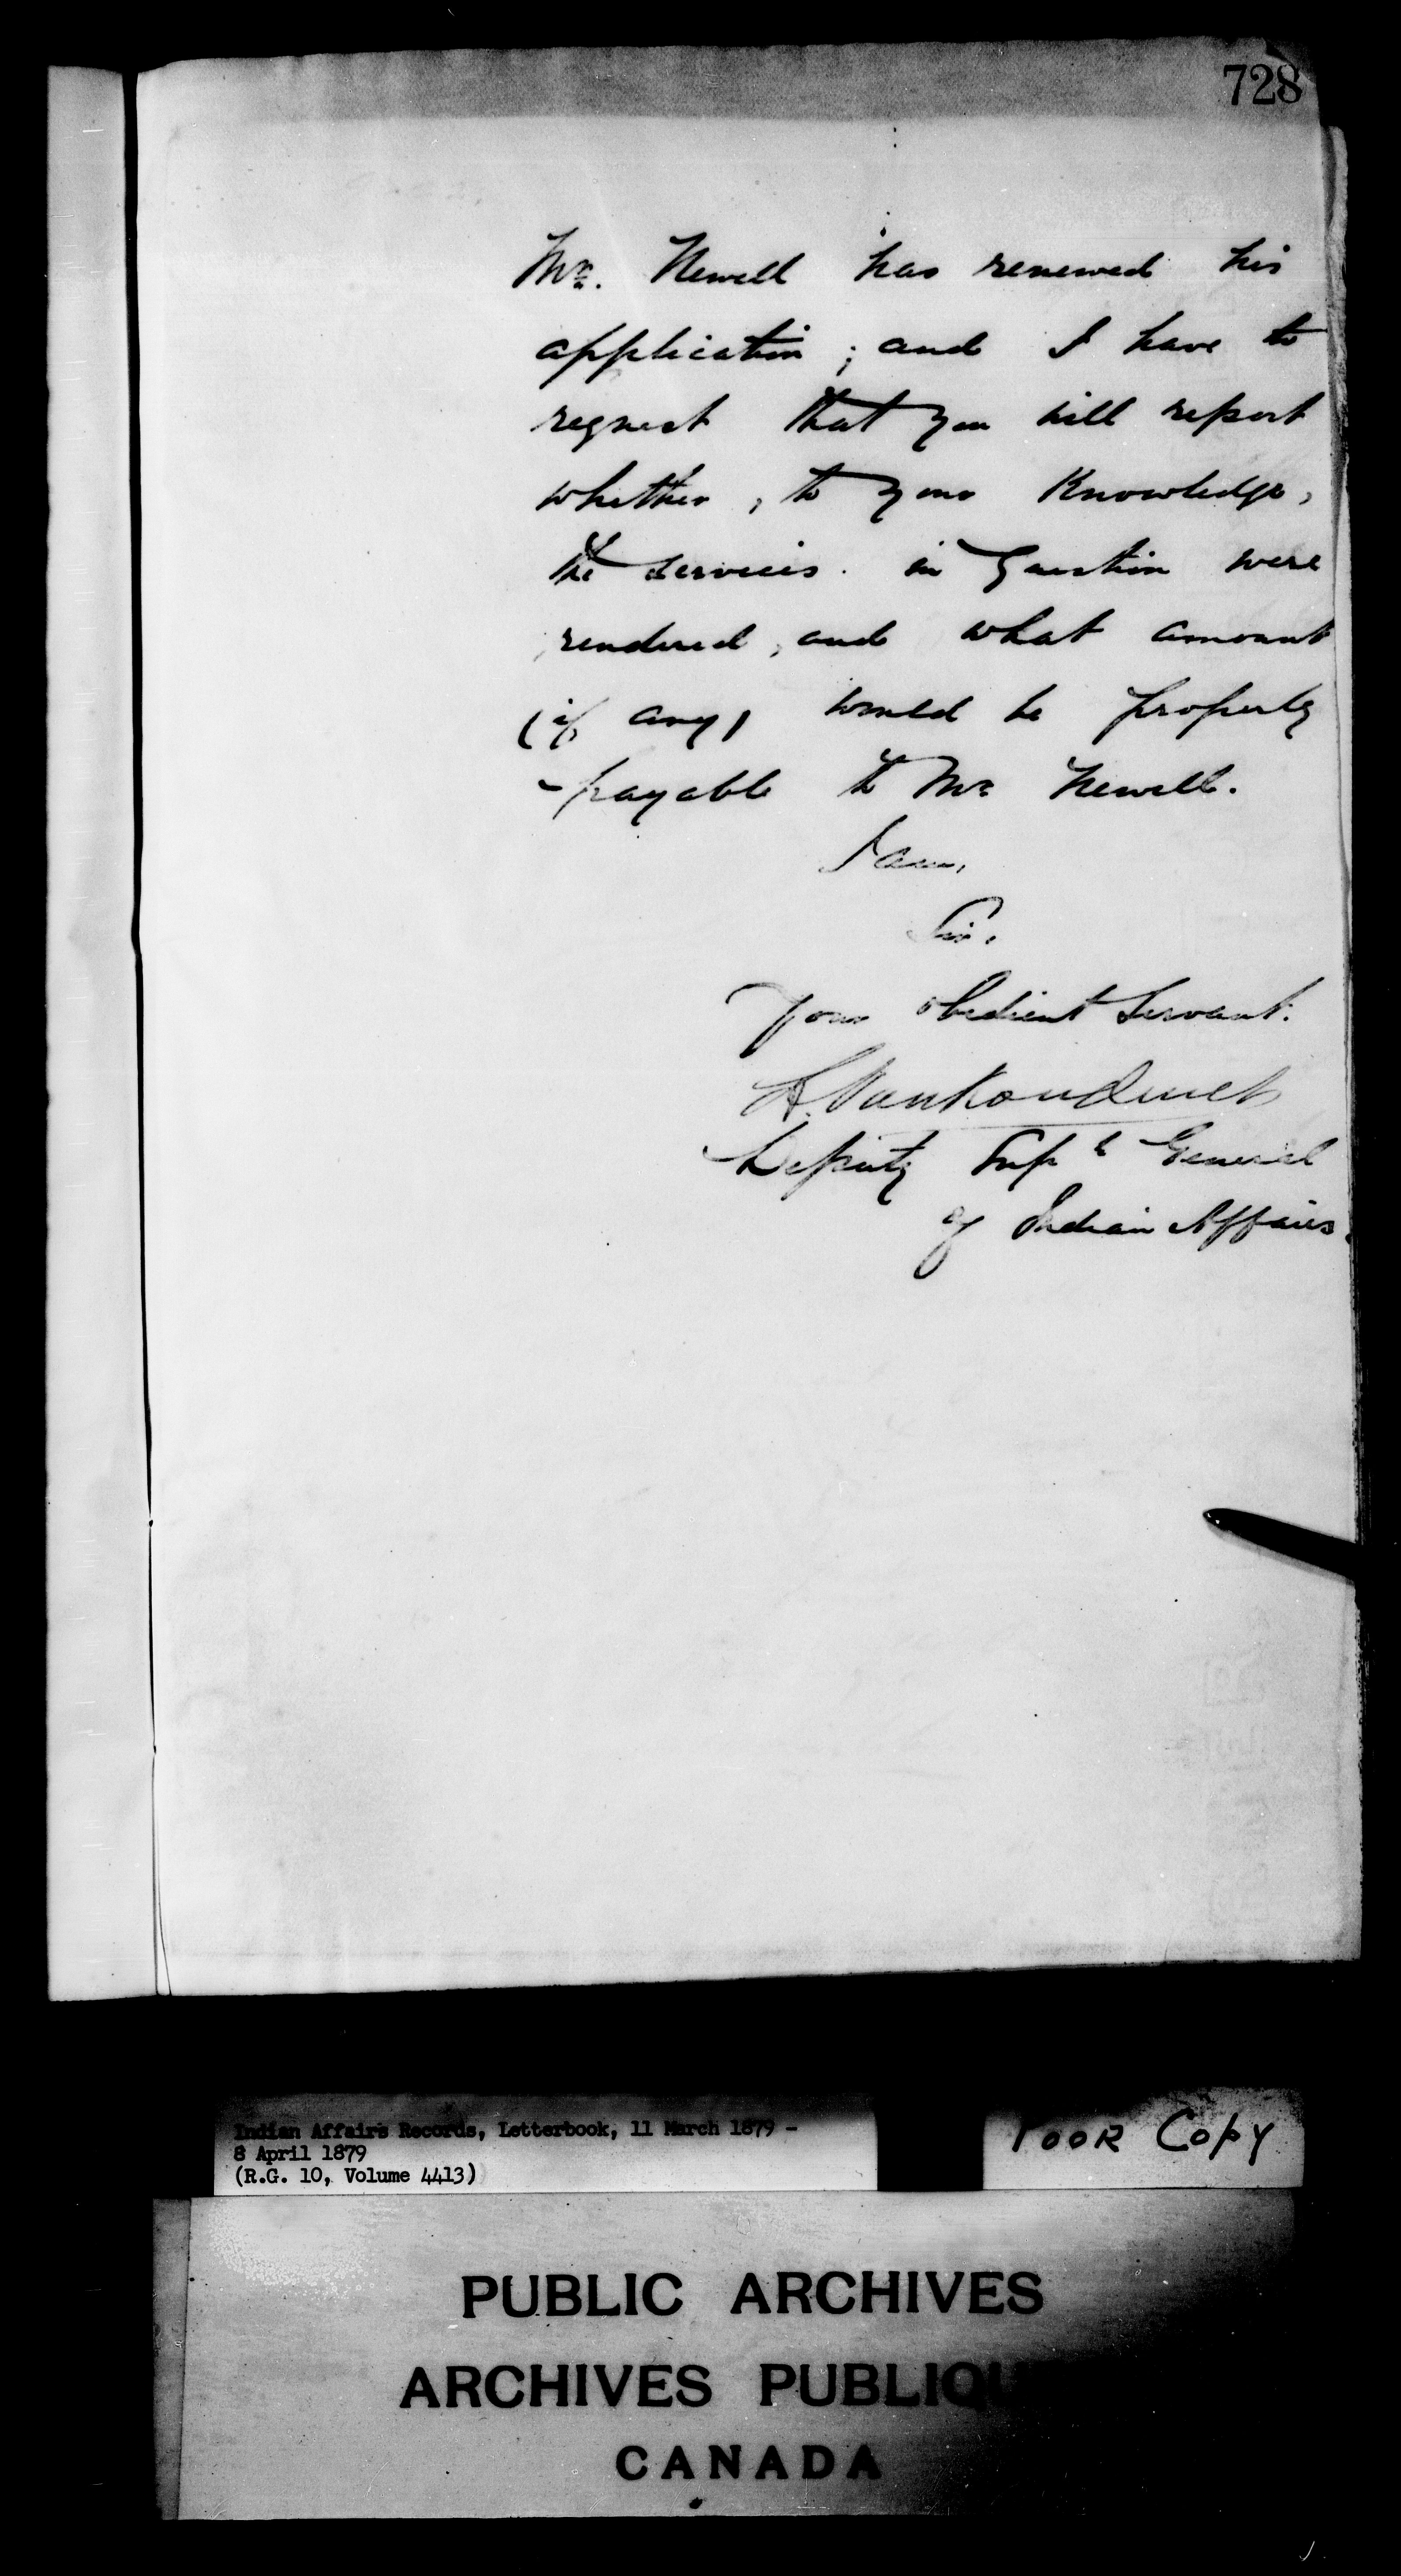 728
Mr. Newell has renewed his
application; and I have to
request that you will report
whether, to your Knowledge,
the services in question were
rendered, and what amount
(if any) would be properly
payable to Mr Newell.
I am,
Sir,
Your obedient Servant.
L. Vankoughnet
Deputy Supt General
of Indian Affairs.
Indian Affairs Records, Letterbook, 11 March 1879 -
8 April 1879
(R.G. 10, Volume 4413)
Poor Copy
PUBLIC ARCHIVES
ARCHIVES PUBLIQU
CANADA